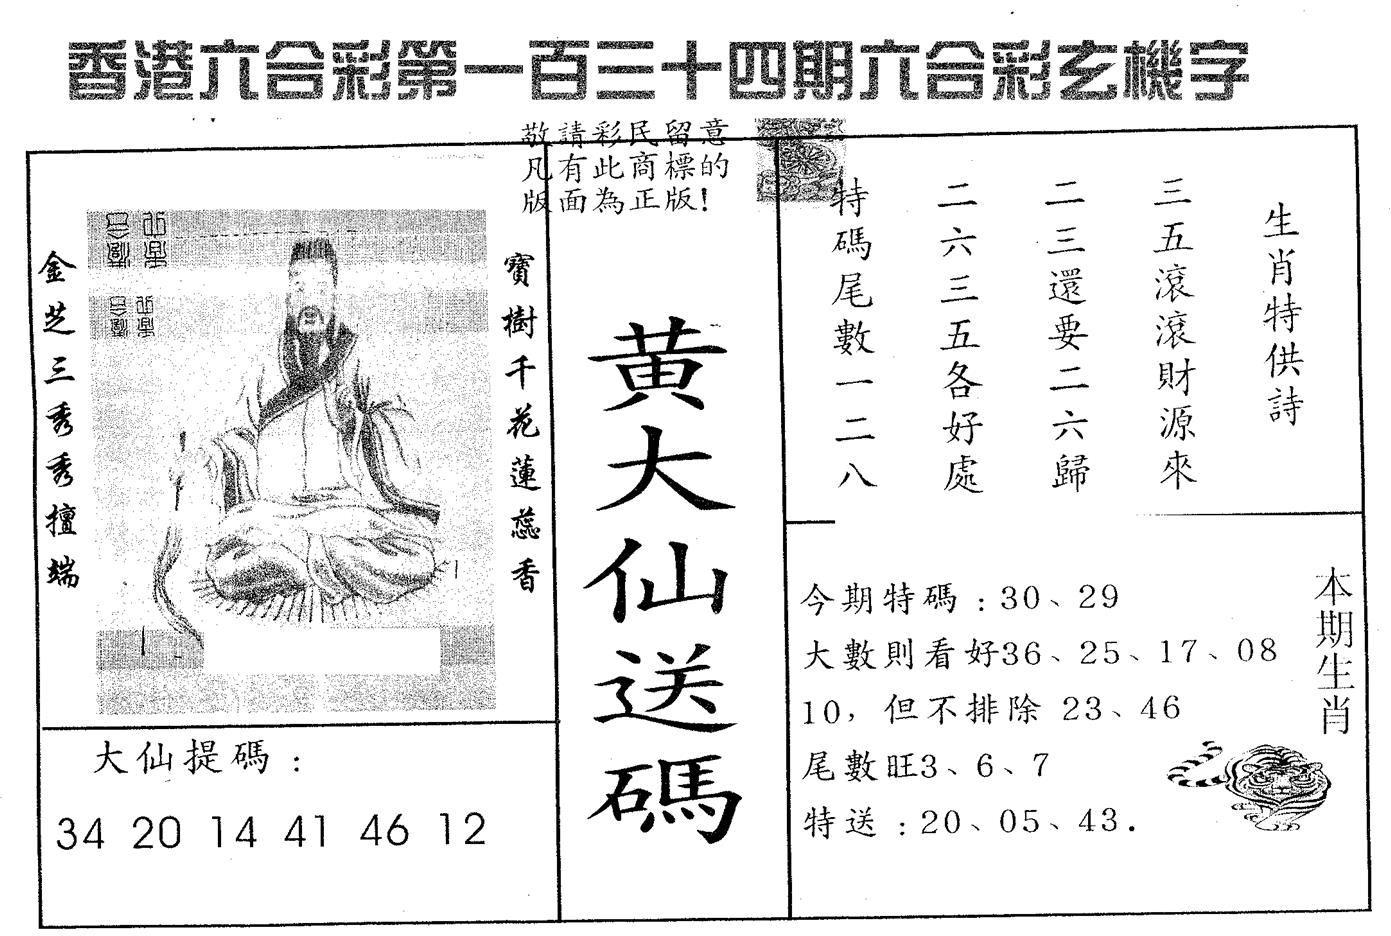 香港六合彩第一百三十四期六合彩玄機字
敬請彩民留意
凡有此商標的
版面為正版!
生肖特供詩
三五滾滾財源來
二三還要二六歸
二六三五各好處
特碼尾數一二八
黃大仙送碼
寶樹千花蓮蕊香
金芝三秀秀擅端
大仙提碼：
34 20 14 41 46 12
本期生肖
今期特碼：30、29
大數則看好36、25、17、08
10，但不排除 23、46
尾數旺3、6、7
特送：20、05、43.